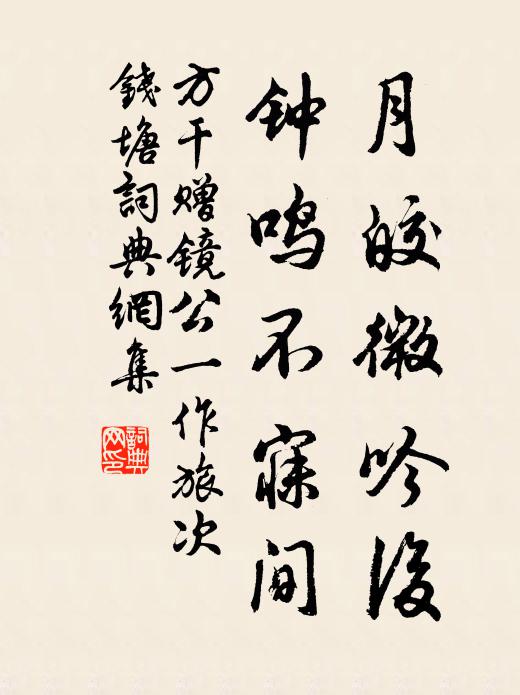 月皎微吟後
钟鸣不寐间
方干赠镜公一作旅次
錢塘詞典網集
詞典网印